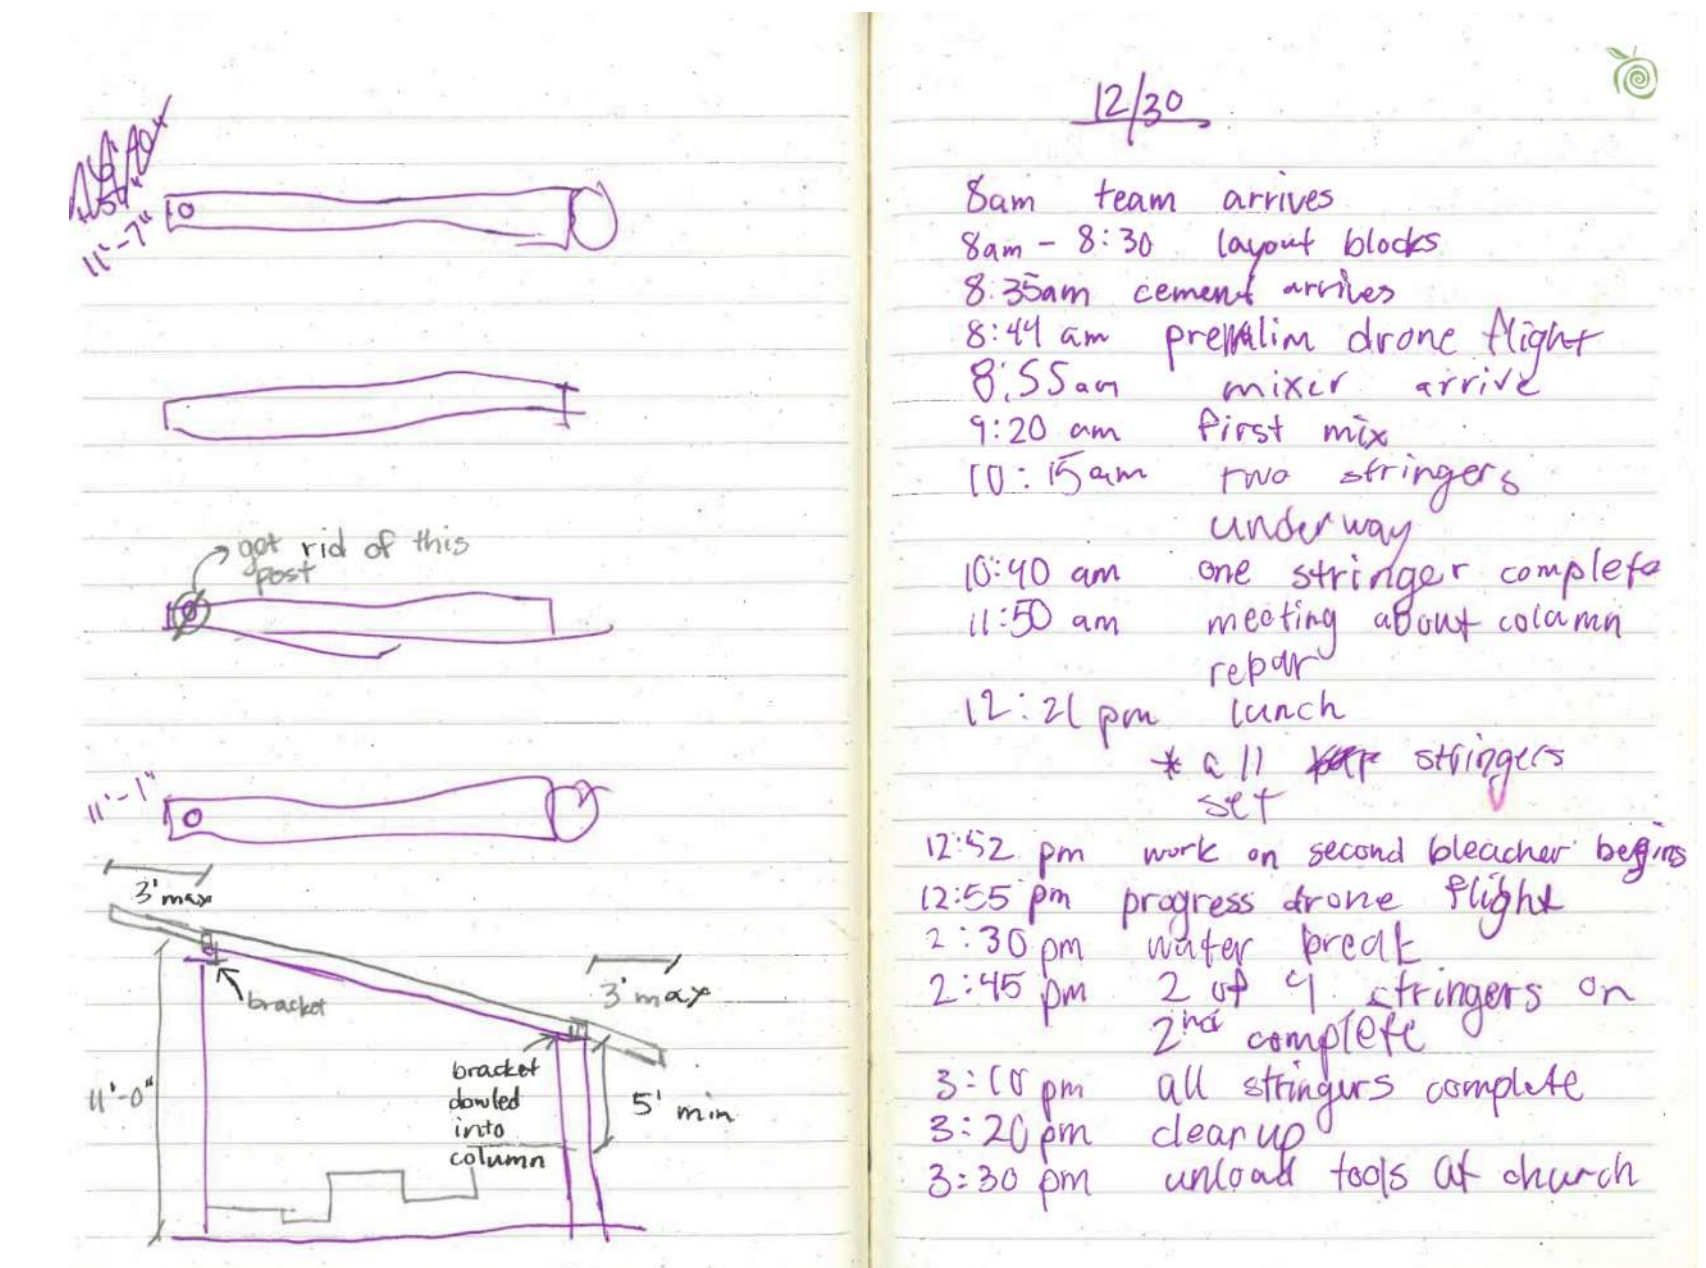 11'-7"
got rid of this
post
11'-1"
3' max
bracket
3' max
11'-0"
bracket
doweled
into
column
5' min
12/30
8am team arrives
8am - 8:30 layout blocks
8:35am cement arrives
8:44 am prelim drone flight
8:55am mixer arrive
9:20 am first mix
10:15am two stringers
underway
10:40 am one stringer complete
11:50 am meeting about column
repair
12:21 pm lunch
* all stringers
set
12:52 pm work on second bleacher begins
12:55 pm progress drone flight
2:30 pm water break
2:45 pm 2 of 4 stringers on
2nd complete
3:10 pm all stringers complete
3:20 pm clean up
3:30 pm unload tools at church